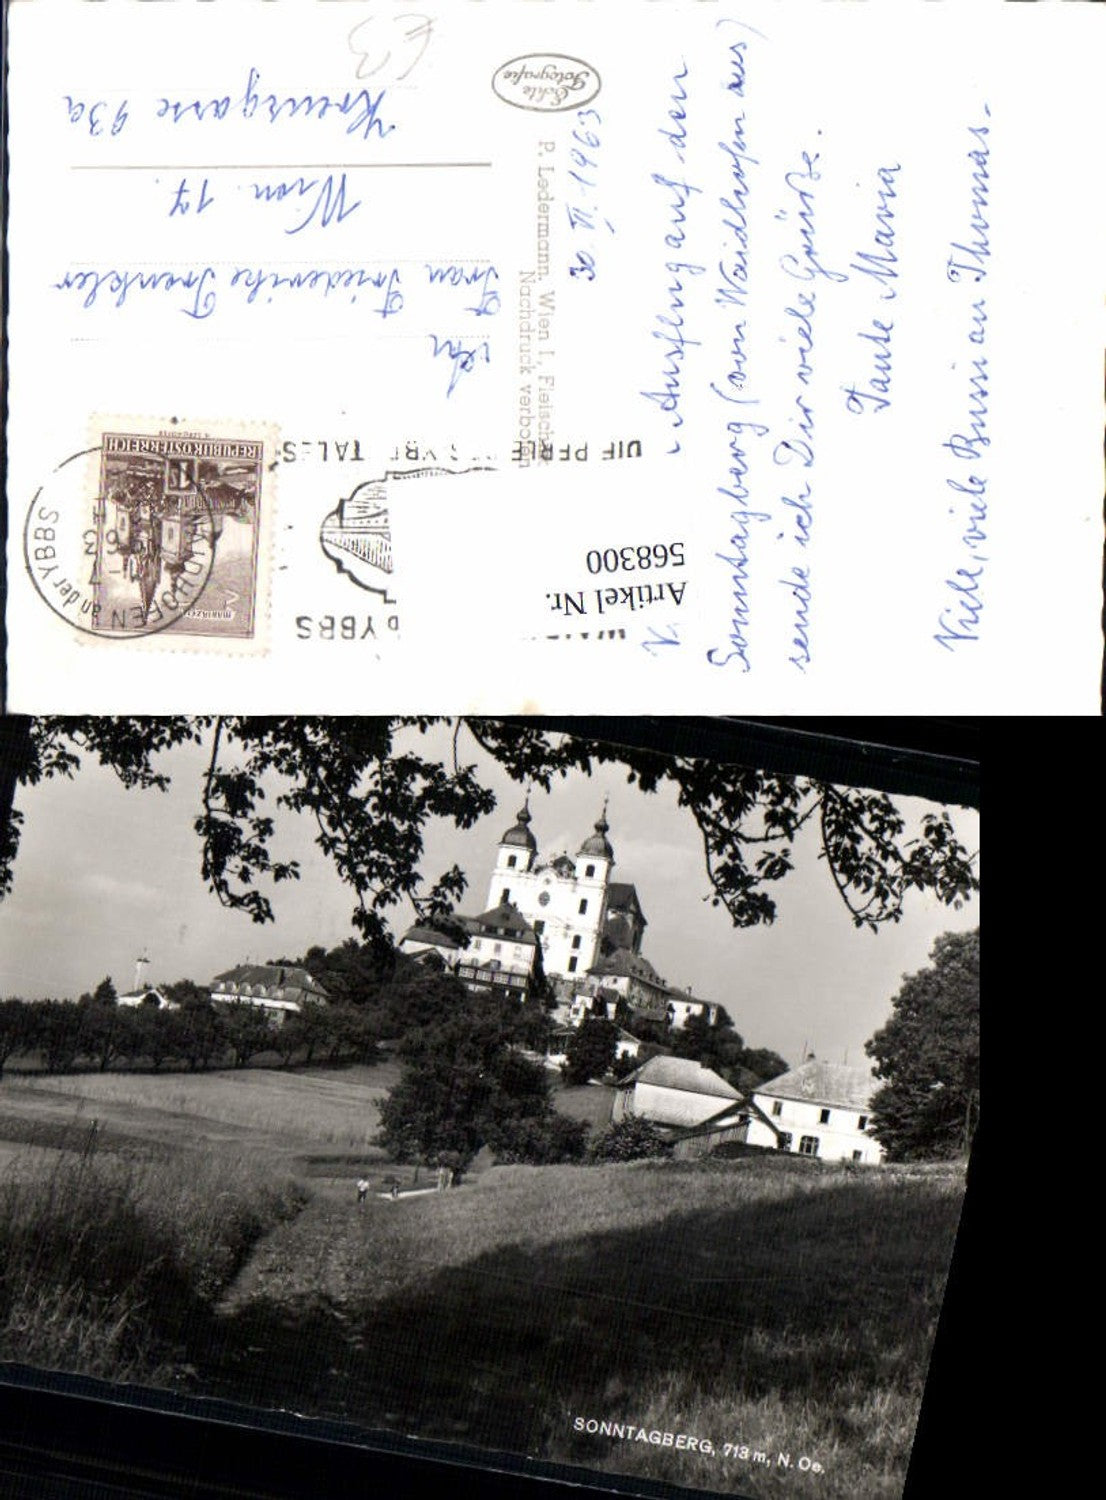 30. VI. 1963
V. Ausflug auf den
Sonntagberg (von Waidhofen aus)
sende ich Dir viele Grüße.
Tante Maria
Viele, viele Bussi an Thomas.
Echte
Fotografie
P. Ledermann, Wien I, Fleisch
Nachdruck verboten
An
Frau Friederike Trenkler
Wien 17.
Kreuzgasse 93a
REPUBLIK ÖSTERREICH
1
MARIAZELL
WAIDHOFEN
an der YBBS
YBBS
TALES
Artikel Nr.
568300
SONNTAGBERG, 713 m, N. Oe.